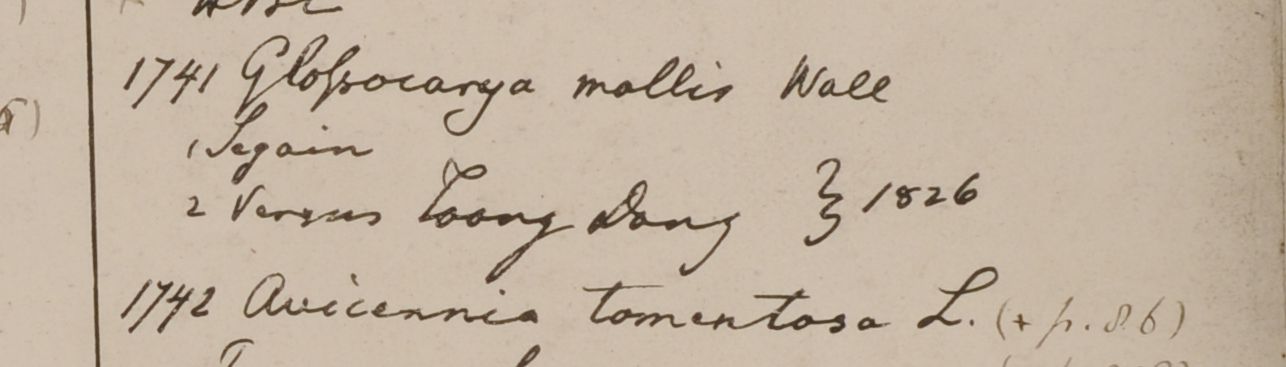 1741 Glossocarya mollis Wall
1 Segain
2 Versus Toong Dong } 1826
1742 Avicennia tomentosa L. (+ p. 86)